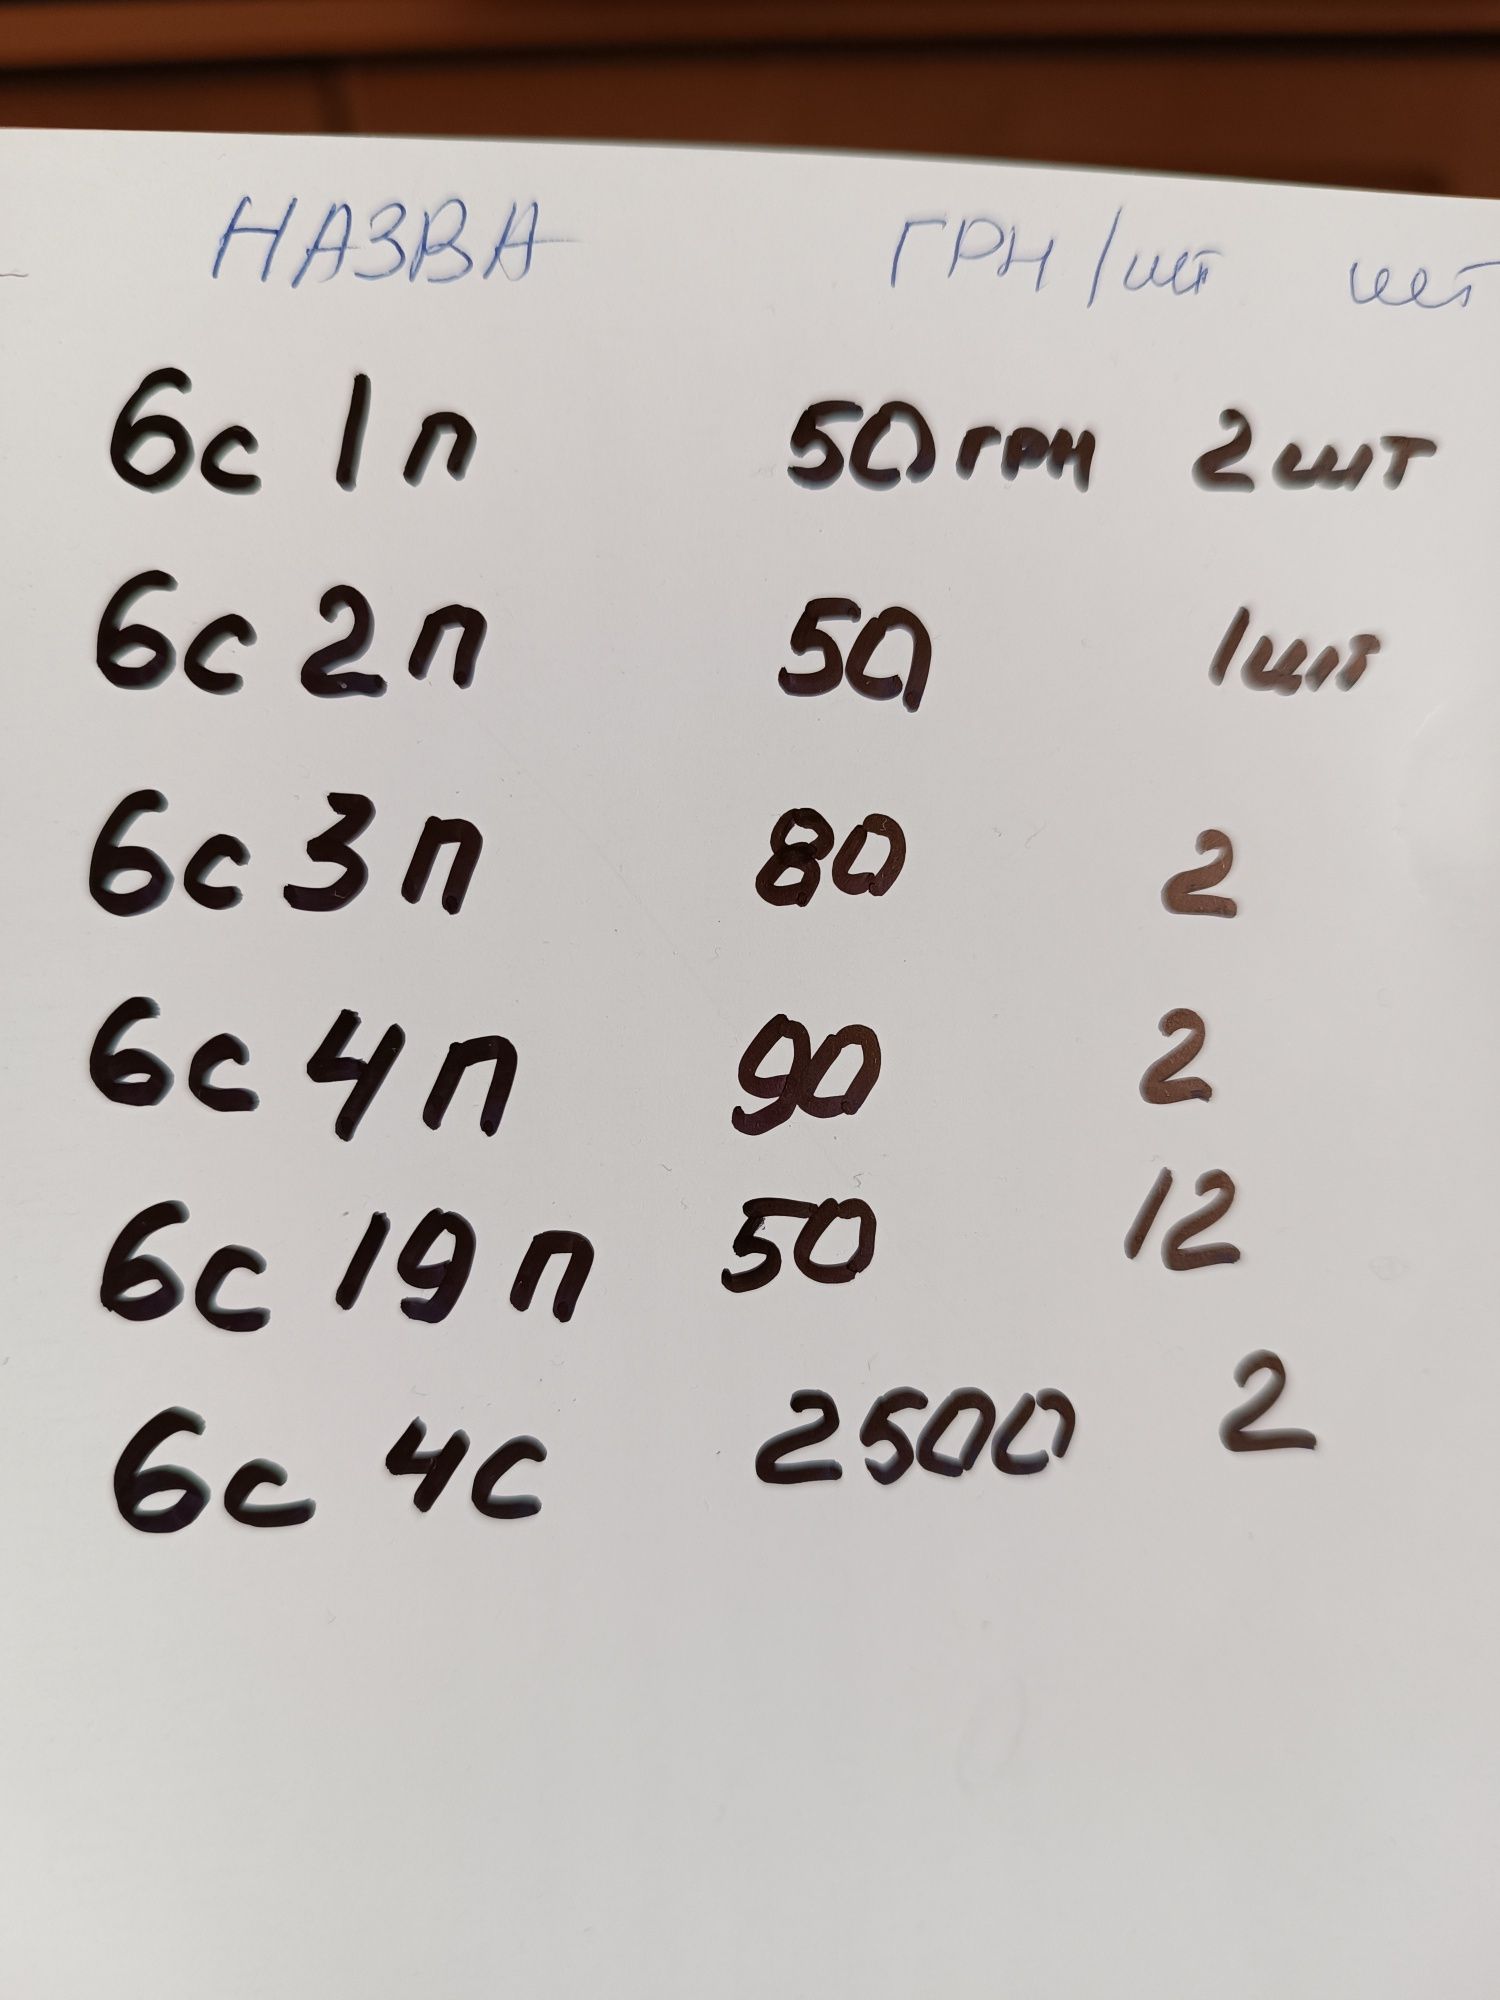 НАЗВА ГРН/шт шт
6с 1п 50грн 2шт
6с 2п 50 1шт
6с 3п 80 2
6с 4п 90 2
6с 19п 50 12
6с 4с 2500 2